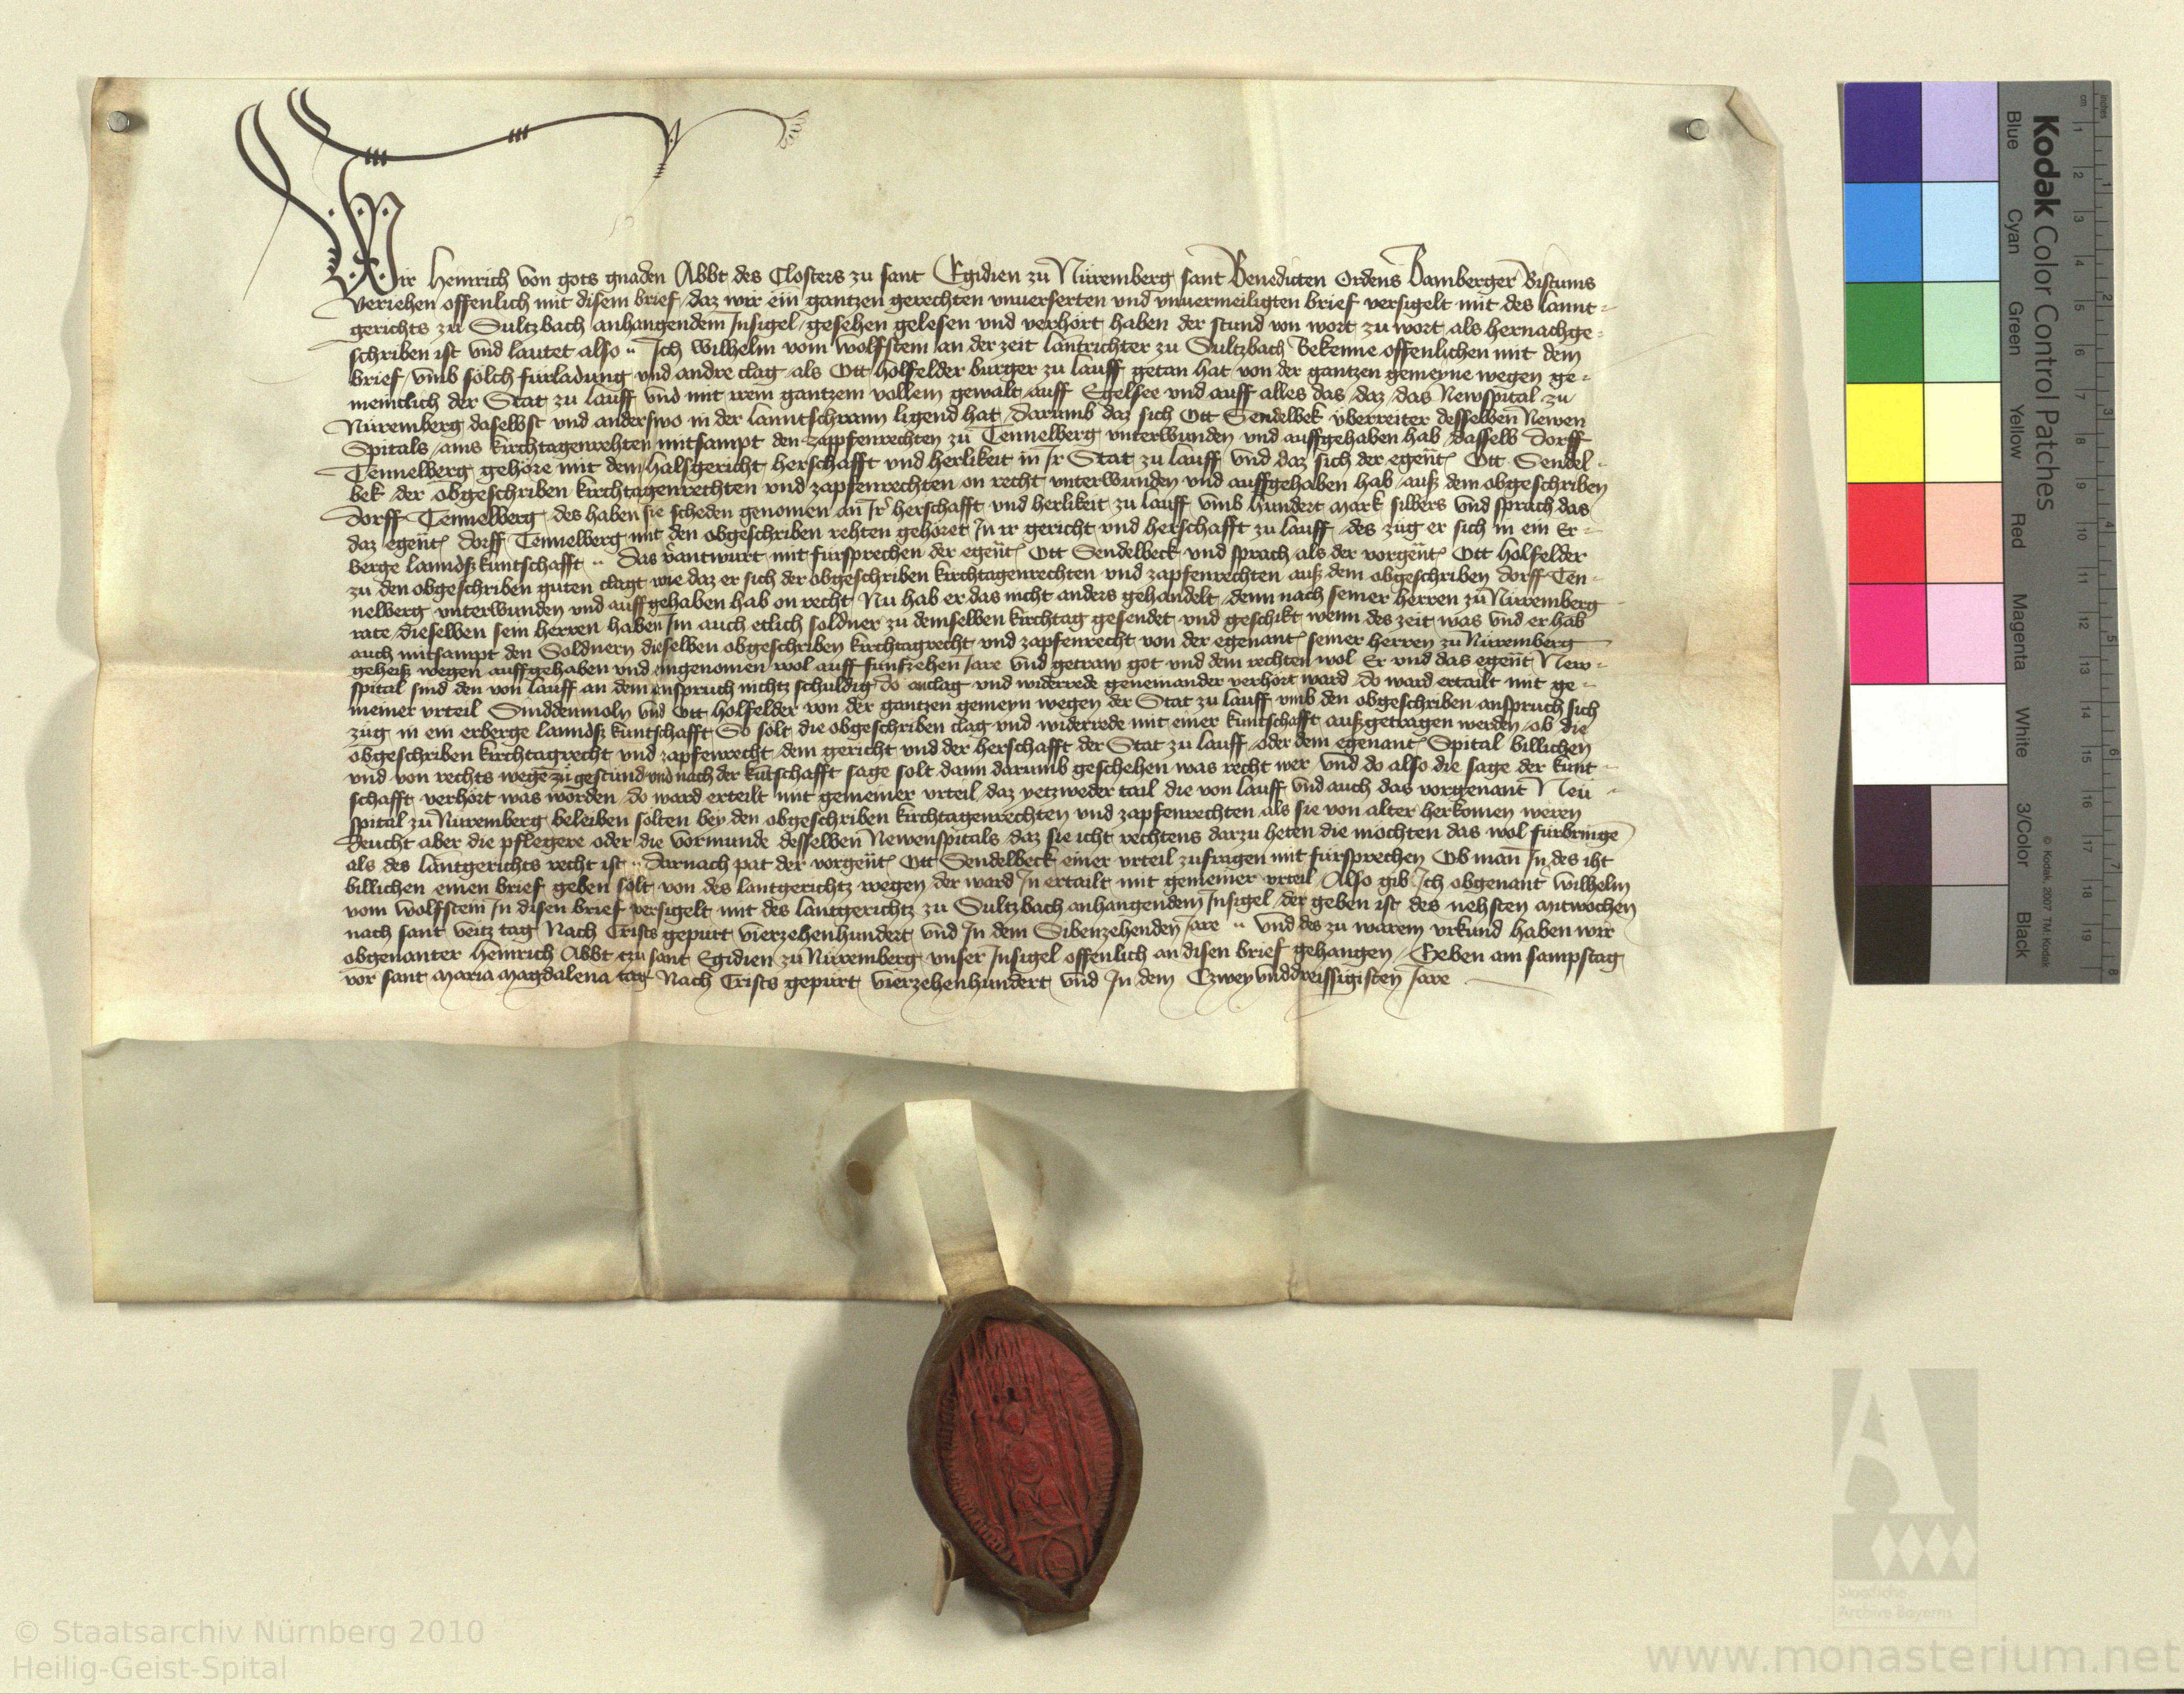 Wir Heinrich von gots gnaden Abbt des Closters zu sant Egidien zu Nüremberg sant Benedicten Ordens Bamberger Bistums
veriehen offenlich mit disem brief daz wir ein gantzen gerechten vnuerserten vnd vnuermeiligten brief versigelt mit des lannt-
gerichts zu Sultzbach anhangendem Insigel gesehen gelesen vnd verhört haben der stund von wort zu wort als hernachge-
schriben ist vnd lautet also Ich Wilhelm vom wolfstein an der zeit lantrichter zu Sultzbach Bekenne offenlichen mit dem
brief vmb sölch fürladung vnd andre clag als Ott holfelder burger zu lauff getan hat von der gantzen gemeyne wegen ge-
meinclich der Stat zu lauff vnd mit irem gantzem vollem gewalt auff Egelsee vnd auff alles das daz das Newspital zu
Nüremberg daselbst vnd anderswo in der lanntschrann ligend hat darumb daz sich Ott Sendelbek überreiter desselben Newen
Spitals ains kirchtagenrehten mitsampt den zappfenrechten zu Tennelberg vnterwunden vnd auffgehaben hab dasselb dorff
Tennelberg gehöre mit dem halsgericht herschafft vnd herlikeit in Ir Stat zu lauff vnd daz sich der egent Ott Sendel-
bek der obgeschriben kirchtagenrechten vnd zapfenrechten on recht vnterwunden vnd auffgehaben hab auß dem obgeschriben
dorff Tennelberg des haben sie scheden genomen an Ir herschafft vnd herlikeit zu lauff vmb hundert mark silbers vnd sprach das
daz egent dorff Tennelberg mit den obgeschriben rehten gehöret In ir gericht vnd herschafft zu lauff des züg er sich in ein Er-
berge lanndß kuntschafft Das vantwurt mit fürsprechen der egent Ott Sendelbeck vnd sprach als der vorgent Ott holfelder
zu den obgeschriben guten clagt wie daz er sich der obgeschriben kirchtagenrechten vnd zapfenrechten auß dem obgeschriben dorff Ten-
nelberg vnterwunden vnd auffgehaben hab on recht Nu hab er das nicht anders gehandelt denn nach seiner herren zu Nüremberg
rate dieselben sein herren haben Im auch etlich soldner zu demselben kirchtag gesendet vnd geschikt wenn des zeit was vnd er hab
auch mitsampt den Soldnern dieselben obgeschriben kirchtagrecht vnd zapfenrecht von der egenant seiner herren zu Nüremberg
geheiß wegen auffgehaben vnd eingenomen wol auff funfzehen Jare vnd getraw got vnd dem rechten wol Er vnd das egent New-
spital sind den von lauff an dem anspruch nichtz schuldig do anclag vnd widerrede geneinander verhört ward do ward ertailt mit ge-
meiner vrteil Sinddenmoln vnd Ott holfelder von der gantzen gemeyn wegen der Stat zu lauff vmb den obgeschriben anspruch sich
züg in ein erberge lanndß kuntschafft So sölt die obgeschriben clag vnd widerrede mit einer kuntschafft außgetragen werden ob die
obgeschriben kirchtagrecht vnd zapfenrecht dem gericht vnd der herschafft der Stat zu lauff oder dem egenant Spital billichen
vnd von rechts wege zu gestünd vnd nach der kutschafft sage solt dann darumb geschehen was recht wer vnd do also die sage der kunt-
schafft verhört was worden do ward erteilt mit gemeiner vrteil daz yetzweder tail die von lauff vnd auch das vorgenant Neu-
spital zu Nüremberg beleiben solten bey den obgeschriben kirchtagenrechten vnd zapfenrechten als sie von alter herkomen weren
Deucht aber die pflegere oder die vormunde desselben Newenspitals daz sie icht rechtens darzu heten die möchten das wol fürbringe
als des lantgerichts recht ist darnach pat der vorgent Ott Sendelbeck einer vrteil zufragen mit fürsprechen Ob man In des iht
billichen einen brief geben sölt von des lantgerichtz wegen der ward In ertailt mit gemeiner vrteil Also gib Ich obgenant wilhelm
vom wolfstein In disen brief versigelt mit des lantgerichtz zu Sultzbach anhangendem Insigel der geben ist des nehsten mitwochen
nach sant veitz tag Nach Crists gepurt vierzehenhundert vnd In dem Sibenzehenden Jare vnd des zu warem vrkund haben wir
obgenanter heinrich Abbt czu sant Egidien zu Nüremberg vnser Insigel offenlich an disen brief gehangen Geben am sampstag
vor sant maria magdalena tag Nach Crists gepürt vierzehenhundert vnd In dem Czwey vnddreissigisten Jare
Kodak Color Control Patches
© Kodak, 2007 TM: Kodak
Blue Cyan Green Yellow Red Magenta White 3/Color Black
cm 1 2 3 4 5 6 7 8 9 10 11 12 13 14 15 16 17 18 19
inches 1 2 3 4 5 6 7 8
Staatliche
Archive Bayerns
© Staatsarchiv Nürnberg 2010
Heilig-Geist-Spital
www.monasterium.net